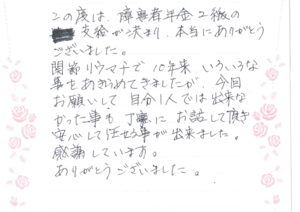 この度は、障害者年金2級の
支給が決まり、本当にありがとう
ございました。
関節リウマチで10年来いろいろな
事をあきらめてきましたが、今回
お願いして自分1人では出来な
かった事も丁寧にお話して頂き
安心して任せる事が出来ました。
感謝しています。
ありがとうございました。